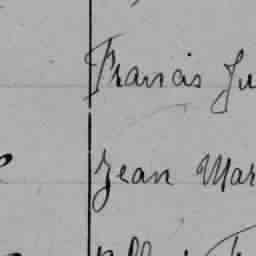 Francis Ju
Jean Mar